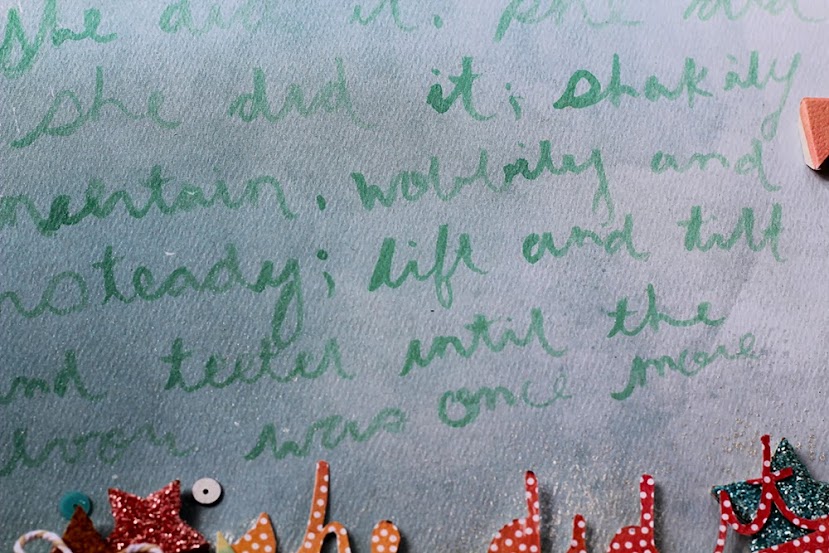 she did it. she did
she did it; shakily
ncertain, wobbily and
nsteady; lift and tilt
and teeter until the
was once more
she did it